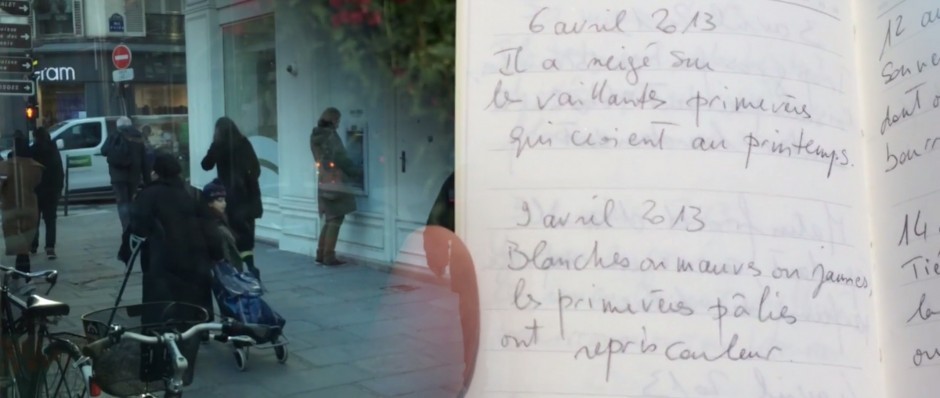 gram
6 avril 2013
Il a neigé sur
les vaillantes primevères
qui croient au printemps.
9 avril 2013
Blanches ou mauves ou jaunes,
les primevères pâlies
ont repris couleur.
12 a
Souve
dont
bourr
14
Tié
la
ou